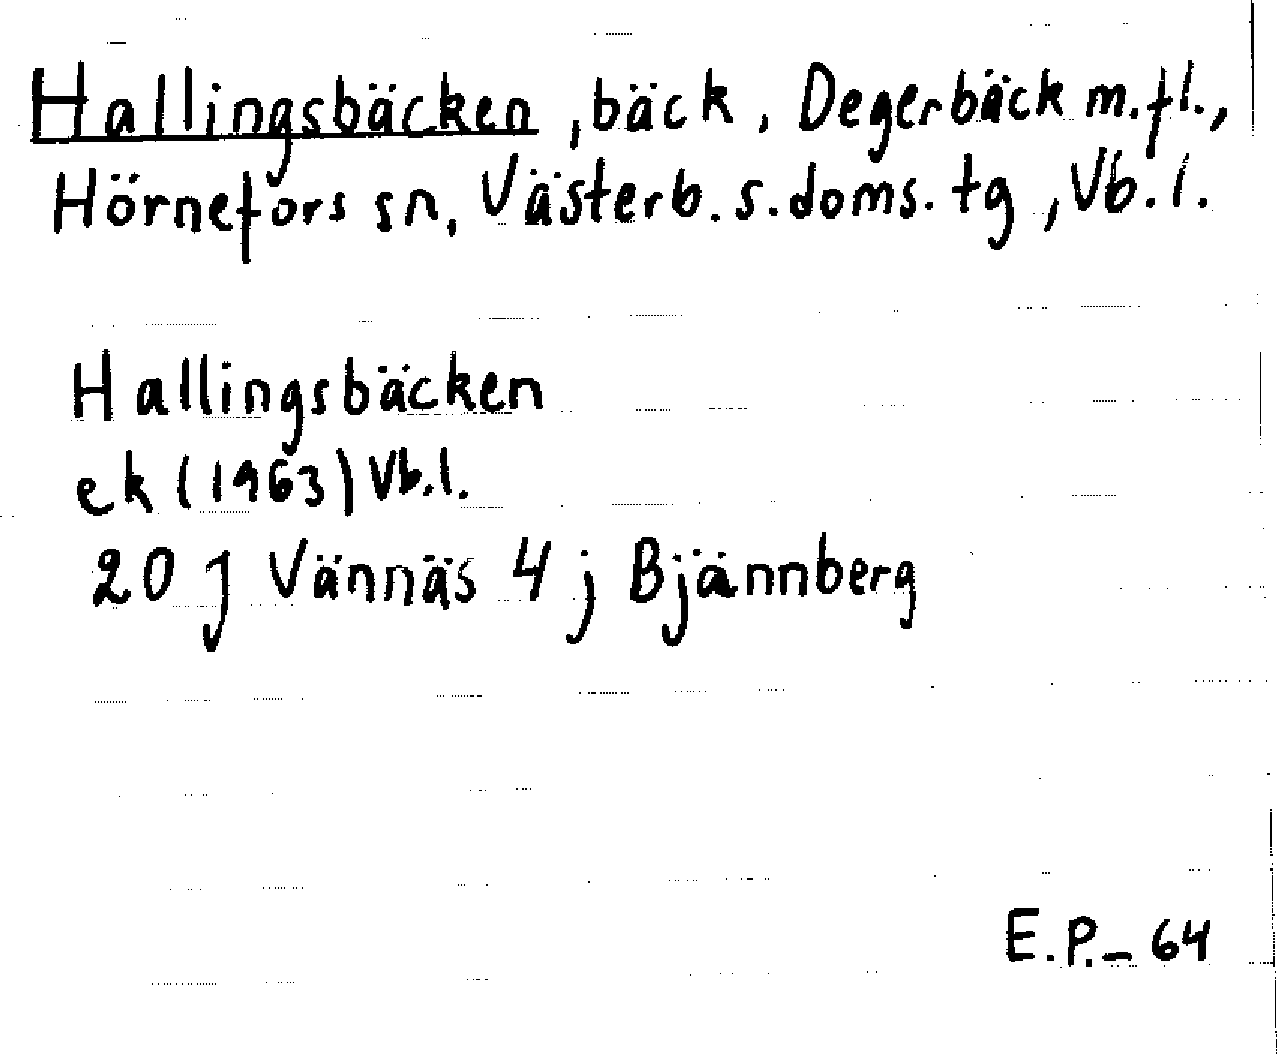 Hallingsbäcken, bäck, Degerbäck m.fl.,
Hörnefors sn, Västerb. s. doms. tg, Vb. l.
Hallingsbäcken
ek (1963) Vb.l.
20 J Vännäs 4 j Bjännberg
E.P. – 64